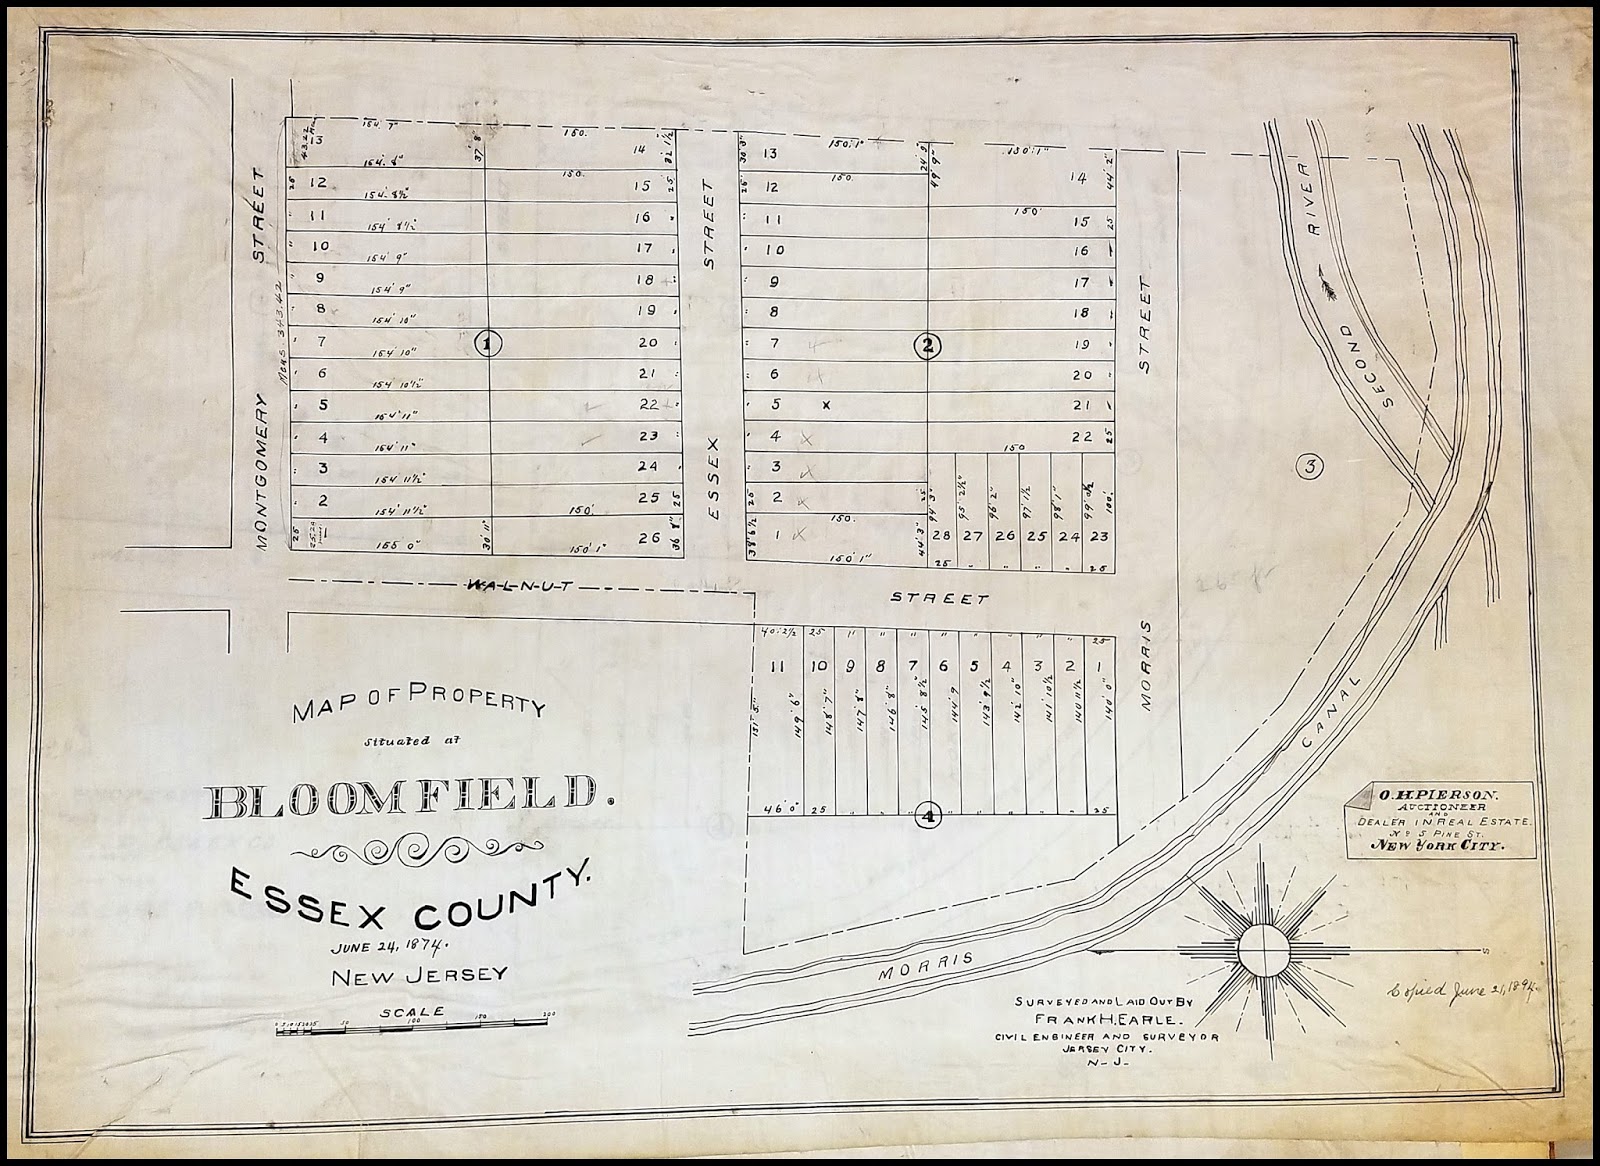 MAP OF PROPERTY
Situated at
BLOOMFIELD.
ESSEX COUNTY.
JUNE 24, 1874.
NEW JERSEY
SCALE
50 100 150 200
MONTGOMERY STREET
Meas. 343.42
ESSEX STREET
MORRIS STREET
WALNUT STREET
SECOND RIVER
MORRIS CANAL
1
13 154' 7" 37' 8" 150. 14 32' 1½
154' 8"
25 12 150. 15 25
154' 8½"
11 16
154' 8½"
10 17
154' 9"
9 18
154' 9"
8 19
154' 10"
7 20
154' 10"
6 21
154' 10½"
5 22
154' 11"
4 23
154' 11"
3 24
154' 11½"
2 25 25
154' 11½" 150'
25 26 36' 8"
155' 0" 30' 11" 150' 1"
2
30' 3" 13 150' 1" 24' 9" 49' 9" 150' 1" 14 44' 2"
25 12 150.
11 150' 15 25
10 16
9 17
8 18
7 19
6 20
5 x 21
4 x 22 25
150
3
25 2 x 25
150.
38' 6½ 1 x 44' 3"
150' 1"
94' 3" 95' 2½" 96' 2" 97' 1½ 98' 1" 99' 0½ 100'
28 27 26 25 24 23
25 " " " " 25
3
40' 2½ 25 " " " " " " " " 25
11 10 9 8 7 6 5 4 3 2 1
151' 5" 149' 6" 148' 7" 147' 8" 146' 8" 145' 8½" 144' 9 143' 9½ 142' 10" 141' 10½ 140' 11½ 140' 0"
46' 0" 25 25
4
O. H. PIERSON.
AUCTIONEER
AND
DEALER IN REAL ESTATE.
No 5 PINE ST.
NEW YORK CITY.
S
Copied June 21, 1894.
SURVEYED AND LAID OUT BY
FRANK H. EARLE.
CIVIL ENGINEER AND SURVEYOR
JERSEY CITY.
N-J-